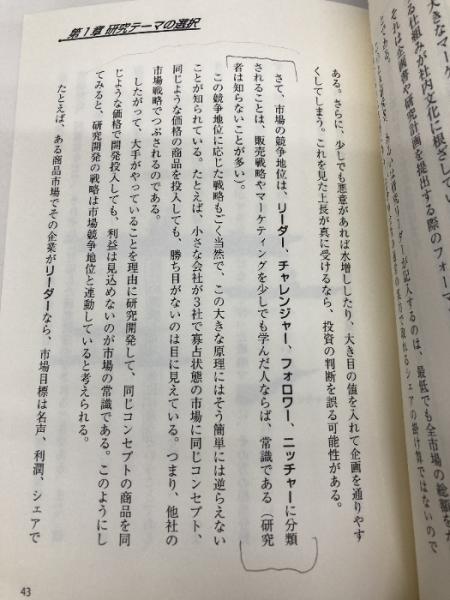 第1章 研究テーマの選択
ある。さらに、少しでも悪意があれば水増ししたり、大き目の値を入れて企画を通りやす
くしてしまう。これを見た上長が真に受けるなら、投資の判断を誤る可能性がある。
さて、市場の競争地位は、リーダー、チャレンジャー、フォロワー、ニッチャーに分類
されることは、販売戦略やマーケティングを少しでも学んだ人ならば、常識である（研究
者は知らないことが多い）。
この競争地位に応じた戦略もごく当然で、この大きな原理にはそう簡単には逆らえない
ことが知られている。たとえば、小さな会社が3社で寡占状態の市場に同じコンセプト、
同じような価格の商品を投入しても、勝ち目がないのは目に見えている。つまり、他社の
市場戦略でつぶされるのである。
したがって、大手がやっていることを理由に研究開発して、同じコンセプトの商品を同
じような価格で開発投入しても、利益は見込めないのが市場の常識である。このようにし
てみると、研究開発の戦略は市場競争地位と連動していると考えられる。
たとえば、ある商品市場でその企業がリーダーなら、市場目標は名声、利潤、シェアで
43